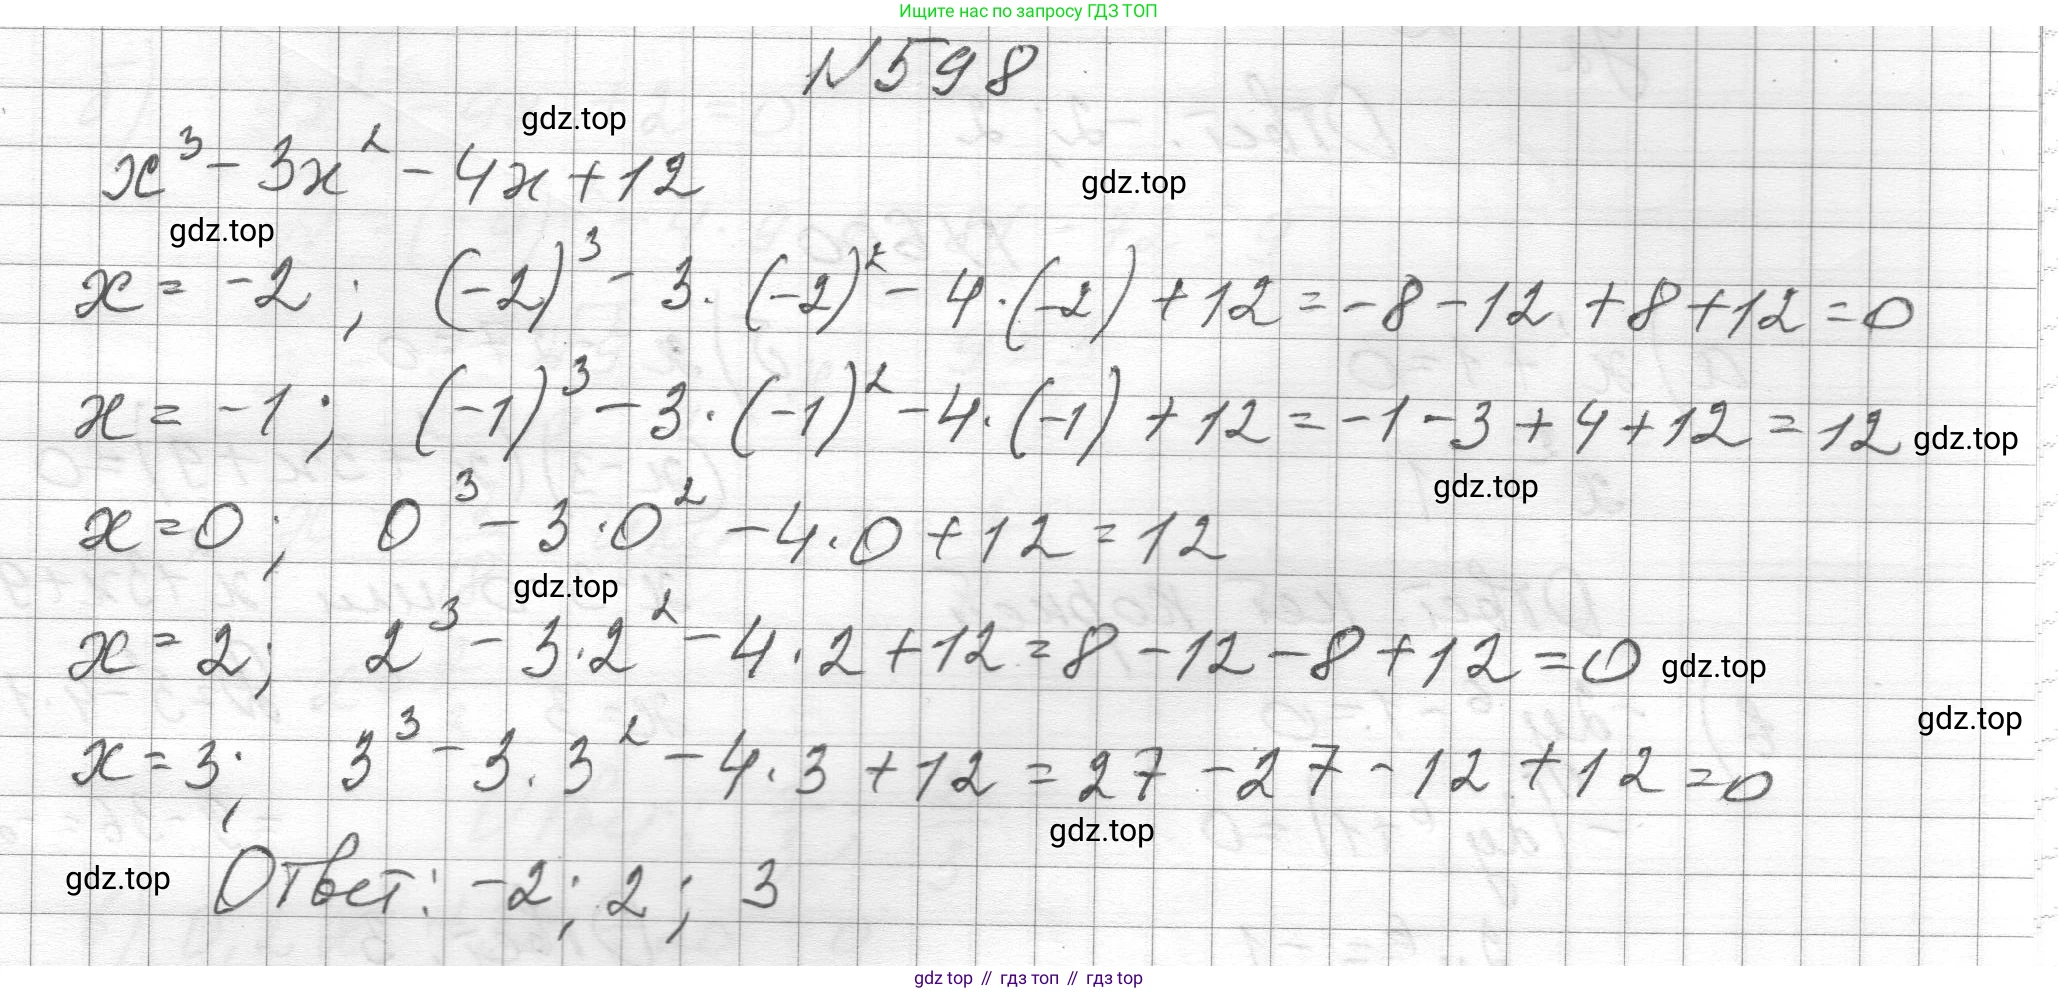 Ищите нас по запросу ГДЗ ТОП
N598
gdz.top
x³ - 3x² - 4x + 12
gdz.top
gdz.top
x = -2; (-2)³ - 3·(-2)² - 4·(-2) + 12 = -8 - 12 + 8 + 12 = 0
x = -1; (-1)³ - 3·(-1)² - 4·(-1) + 12 = -1 - 3 + 4 + 12 = 12
gdz.top
gdz.top
x = 0; 0³ - 3·0² - 4·0 + 12 = 12
gdz.top
x = 2; 2³ - 3·2² - 4·2 + 12 = 8 - 12 - 8 + 12 = 0
gdz.top
gdz.top
x = 3; 3³ - 3·3² - 4·3 + 12 = 27 - 27 - 12 + 12 = 0
gdz.top
gdz.top
Ответ: -2; 2; 3
gdz top // гдз топ // гдз top